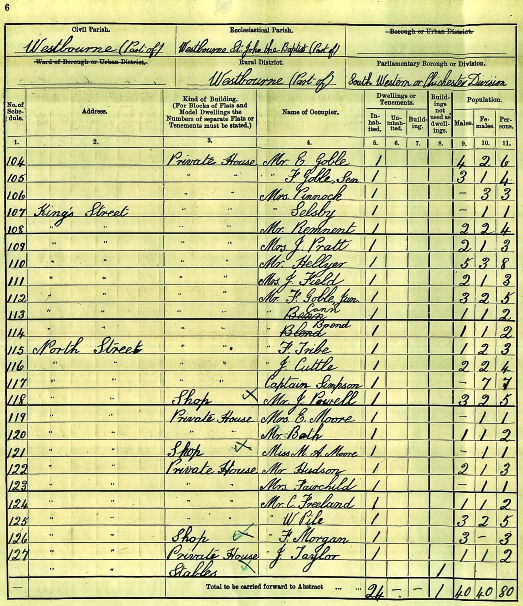 6
Civil Parish. Ecclesiastical Parish. Borough or Urban District.
Westbourne (Part of) Westbourne St. John the Baptist (Part of)
Ward of Borough or Urban District. Rural District. Parliamentary Borough or Division.
Westbourne (Part of) South Western or Chichester Division
No. of Schedule. Address. Kind of Building. (For Blocks of Flats and Model Dwellings the Numbers of separate Flats or Tenements must be stated.) Name of Occupier. Dwellings or Tenements. Inhabited. Uninhabited. Building. Buildings not used as dwellings. Population. Males. Females. Persons.
1. 2. 3. 4. 5. 6. 7. 8. 9. 10. 11.
104 Private House Mr. C Goble 1 4 2 6
105 " " " F Goble, Sen 1 3 1 4
106 " " Mrs. Pinnock 1 - 3 3
107 King's Street " " " Selsby 1 - 1 1
108 " " " " Mr. Remnent 1 2 2 4
109 " " " " Mrs. J. Pratt 1 2 1 3
110 " " " " Mr. Hellyer 1 5 3 8
111 " " " " Mrs. J. Field 1 2 1 3
112 " " " " Mr. F. Goble Jun. 1 3 2 5
113 " " " " " Cann 1 1 1 2
114 " " " " " Bpond 1 1 1 2
115 North Street " " " F. Tribe 1 1 2 3
116 " " " " " J Cuttle 1 2 2 4
117 " " " " Captain Simpson 1 - 7 7
118 " " Shop Mr. J. Powell 1 3 2 5
119 " " Private House Mrs. E. Moore 1 - 1 1
120 " " " " Mr. Bath 1 1 1 2
121 " " Shop Miss M. A. Moore 1 - 1 1
122 " " Private House Mr Hudson 1 2 1 3
123 " " " " Mrs. Fairchild 1 - 1 1
124 " " " " Mr. C. Freeland 1 1 1 2
125 " " " " " W. Pile 1 3 2 5
126 " " Shop " F. Morgan 1 3 - 3
127 " " Private House " J Taylor 1 1 1 2
Stables 1
Total to be carried forward to Abstract 24 - - 1 40 40 80